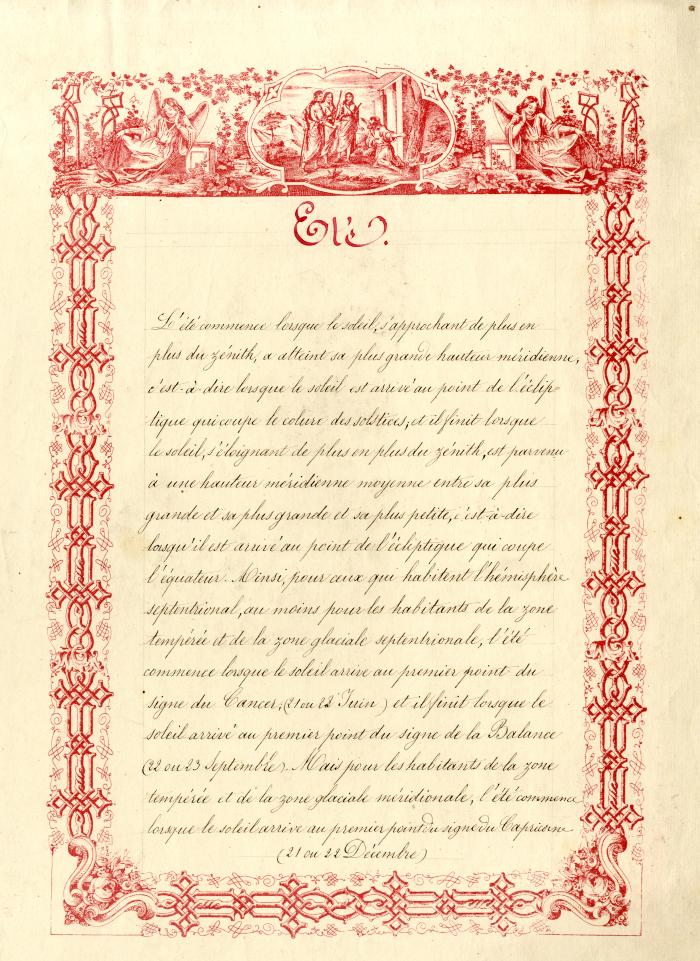 Eté.
L'été commence lorsque le soleil, s'approchant de plus en
plus du zénith, a atteint sa plus grande hauteur méridienne,
c'est-à-dire lorsque le soleil est arrivé au point de l'éclip-
tique qui coupe le colure des solstices; et il finit lorsque
le soleil, s'éloignant de plus en plus du zénith, est parvenu
à une hauteur méridienne moyenne entre sa plus
grande et sa plus grande et sa plus petite, c'est-à-dire
lorsqu'il est arrivé au point de l'écliptique qui coupe
l'équateur. Ainsi, pour ceux qui habitent l'hémisphère
septentrional, au moins pour les habitants de la zone
tempérée et de la zone glaciale septentrionale, l'été
commence lorsque le soleil arrive au premier point du
signe du Cancer, (21 ou 22 Juin) et il finit lorsque le
soleil arrive au premier point du signe de la Balance
(22 ou 23 Septembre). Mais pour les habitants de la zone
tempérée et de la zone glaciale méridionale, l'été commence
lorsque le soleil arrive au premier point du signe du Capricorne
(21 ou 22 Décembre)